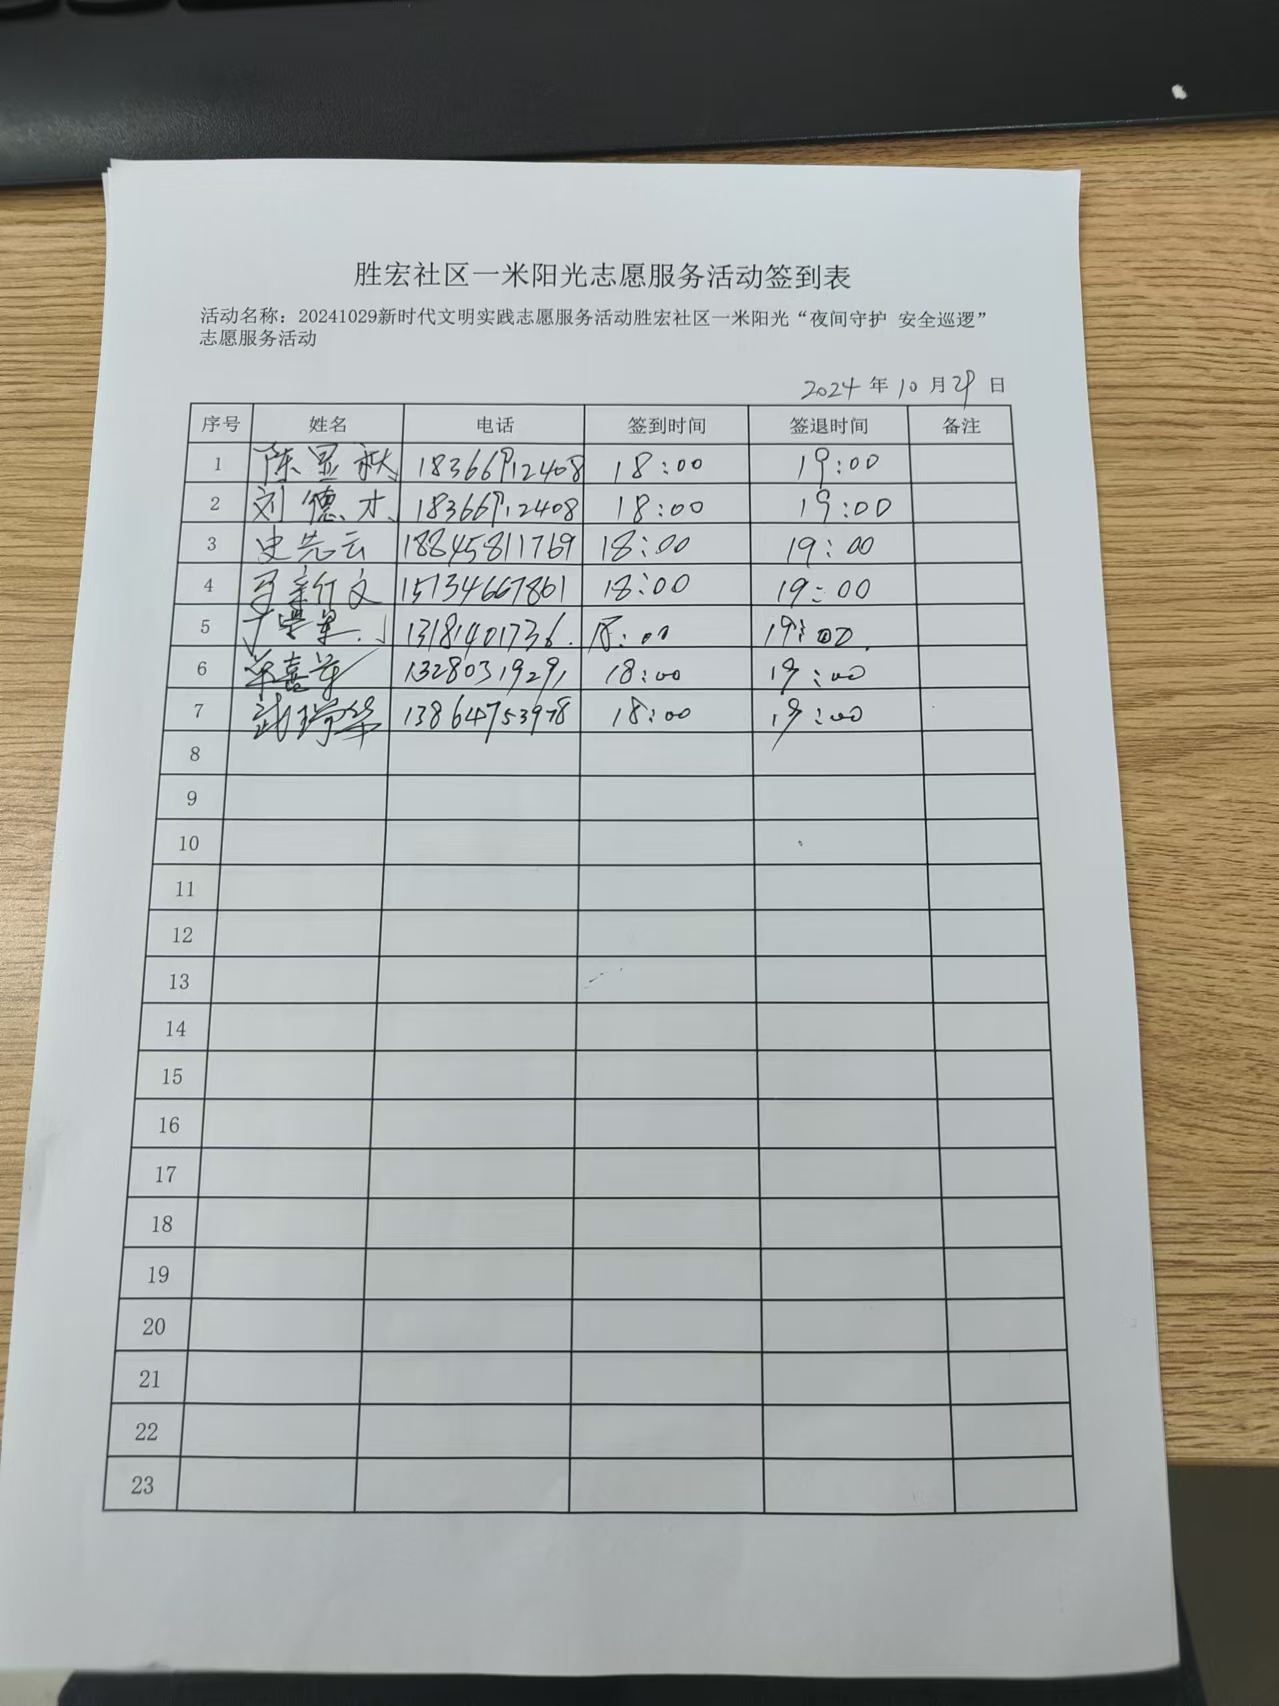 胜宏社区一米阳光志愿服务活动签到表
活动名称：20241029新时代文明实践志愿服务活动胜宏社区一米阳光“夜间守护 安全巡逻”
志愿服务活动
2024 年 10 月 29 日
序号 姓名 电话 签到时间 签退时间 备注
1 陈显秋 18366912408 18:00 19:00
2 刘德木 18366912408 18:00 19:00
3 史先云 18845811769 18:00 19:00
4 文 15134667861 18:00 19:00
5 13181401736. :00 19:00
6 喜 13280319291 18:00 19:00
7 武瑞华 13864753978 18:00 19:00
8
9
10
11
12
13
14
15
16
17
18
19
20
21
22
23